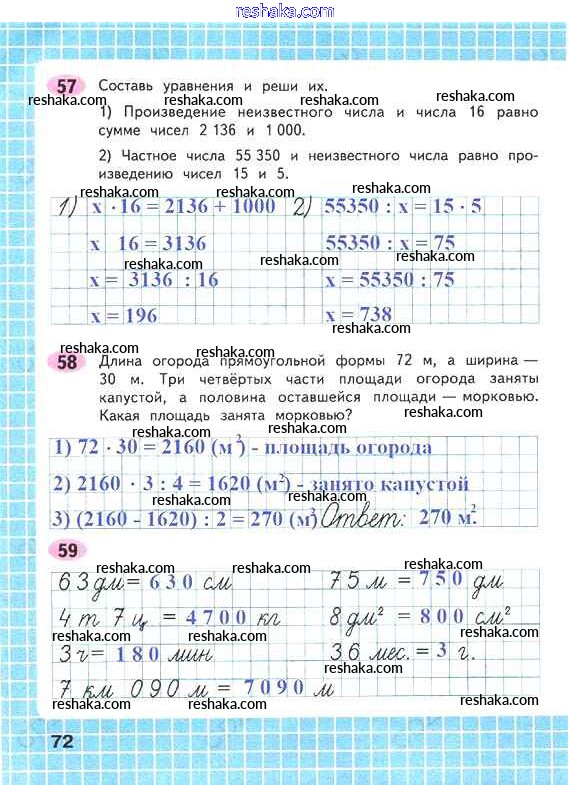 reshaka.com
57 Составь уравнения и реши их.
reshaka.com reshaka.com reshaka.com
1) Произведение неизвестного числа и числа 16 равно
reshaka.com reshaka.com
сумме чисел 2 136 и 1 000.
reshaka.com
2) Частное числа 55 350 и неизвестного числа равно про-
reshaka.com reshaka.com
изведению чисел 15 и 5.
reshaka.com reshaka.com
1) х · 16 = 2136 + 1000 2) 55350 : х = 15 · 5
reshaka.com reshaka.com
х 16 = 3136 55350 : х = 75
reshaka.com reshaka.com
х = 3136 : 16 х = 55350 : 75
reshaka.com reshaka.com
х = 196 х = 738
reshaka.com reshaka.com
58 Длина огорода прямоугольной формы 72 м, а ширина —
reshaka.com reshaka.com
30 м. Три четвёртых части площади огорода заняты
капустой, а половина оставшейся площади — морковью.
reshaka.com reshaka.com
Какая площадь занята морковью?
reshaka.com reshaka.com
1) 72 · 30 = 2160 (м²) - площадь огорода
reshaka.com reshaka.com
2) 2160 · 3 : 4 = 1620 (м²) - занято капустой
reshaka.com reshaka.com
3) (2160 - 1620) : 2 = 270 (м²) Ответ: 270 м².
reshaka.com reshaka.com
59
reshaka.com reshaka.com
63 дм = 630 см 75 м = 750 дм
reshaka.com reshaka.com
4 т 7 ц = 4700 кг 8 дм² = 800 см²
reshaka.com reshaka.com
3 ч = 180 мин 36 мес. = 3 г.
reshaka.com reshaka.com
7 км 090 м = 7090 м
reshaka.com reshaka.com
72